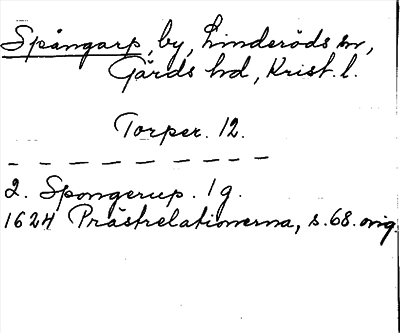 Spångarp, by, Linderöds sn,
Gärds hd, Krist. l.
Torper. 12.
2. Spongerup. 1 g.
1624 Prästrelationerna, s. 68. orig.